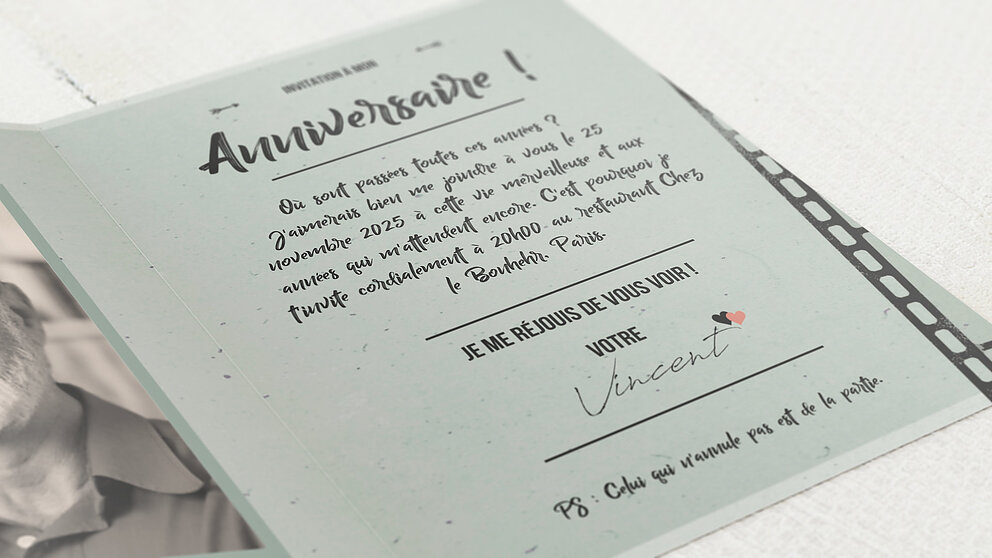 INVITATION À MON
Anniversaire !
Où sont passées toutes ces années ?
J'aimerais bien me joindre à vous le 25
novembre 2025 à cette vie merveilleuse et aux
années qui m'attendent encore. C'est pourquoi je
t'invite cordialement à 20h00 au restaurant Chez
le Bonheur, Paris.
JE ME RÉJOUIS DE VOUS VOIR !
VOTRE
Vincent
PS : Celui qui n'annule pas est de la partie.